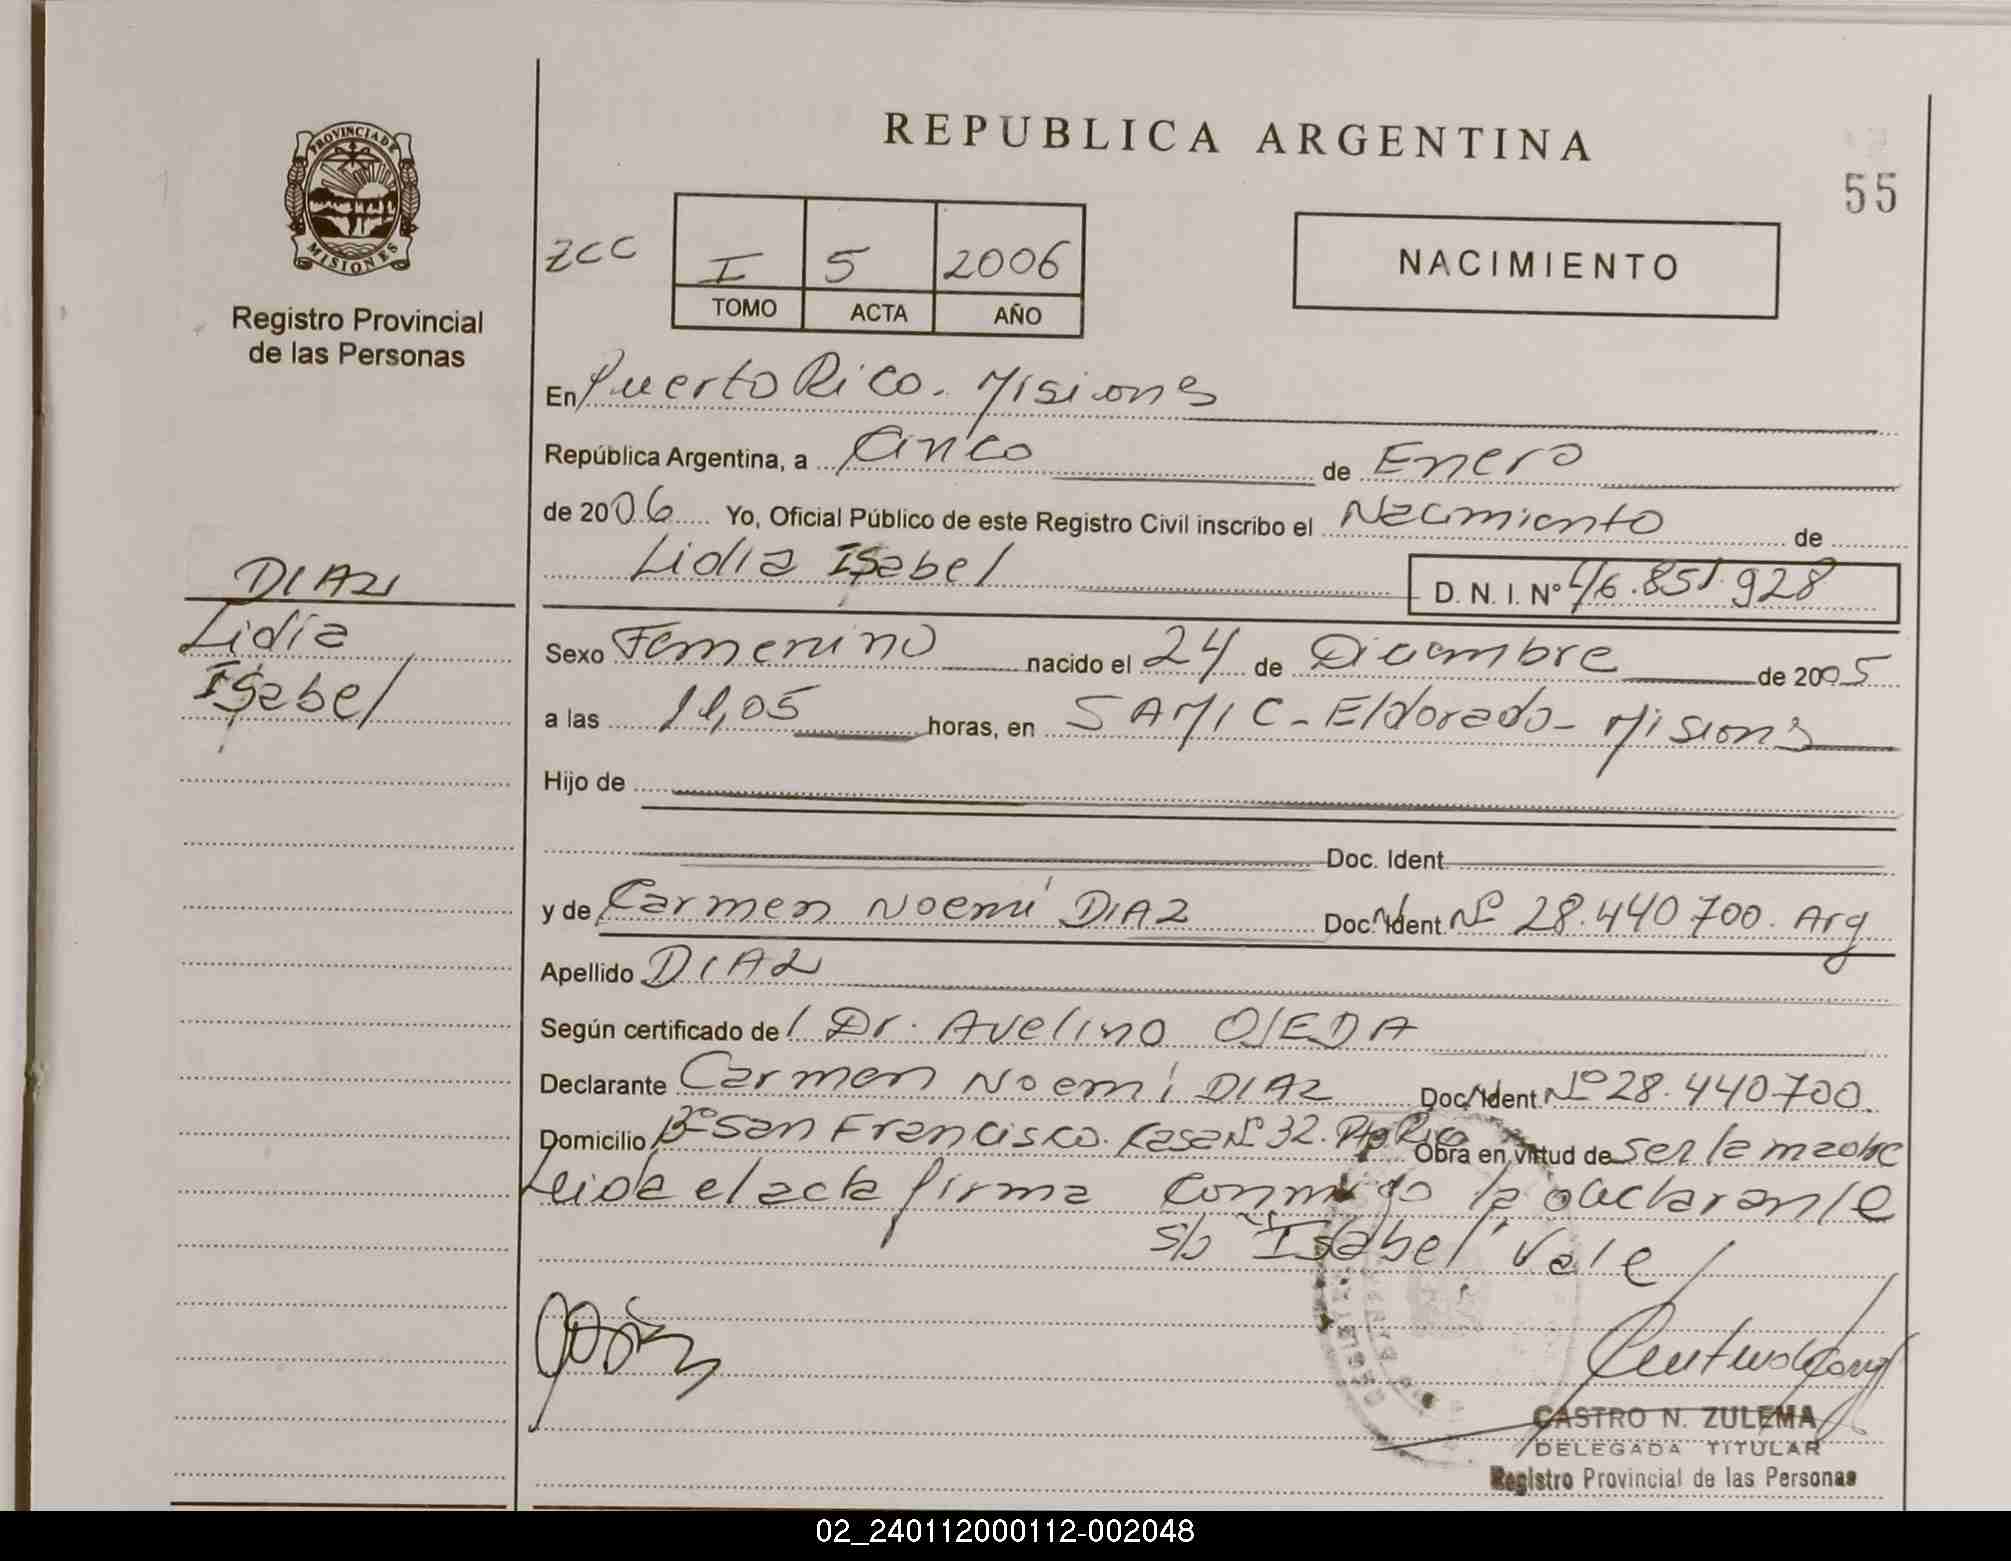 REPUBLICA ARGENTINA
55
PROVINCIA DE
MISIONES
Registro Provincial
de las Personas
ZCC
I 5 2006
TOMO ACTA AÑO
NACIMIENTO
En Puerto Rico. Misiones
República Argentina, a Cinco de Enero
de 2006 Yo, Oficial Público de este Registro Civil inscribo el Nacimiento de
Lidia Isabel D. N. I. Nº 46.851.928
DIAZ
Lidia
Isabel
Sexo Femenino nacido el 24 de Diciembre de 2005
a las 11,05 horas, en SAMIC - Eldorado - Misiones
Hijo de
Doc. Ident.
y de Carmen Noemí DIAZ Doc. Ident. Nº 28.440.700. Arg
Apellido DIAZ
Según certificado de Dr. Avelino OJEDA
Declarante Carmen Noemí DIAZ Doc. Ident Nº 28.440.700.
Domicilio Bº San Francisco. Casa Nº 32. Pto Rico Obra en virtud de ser la madre
Leida el acta firma conmigo la declarante
s/b "Isabel" Vale
CASTRO N. ZULEMA
DELEGADA TITULAR
Registro Provincial de las Personas
02_240112000112-002048